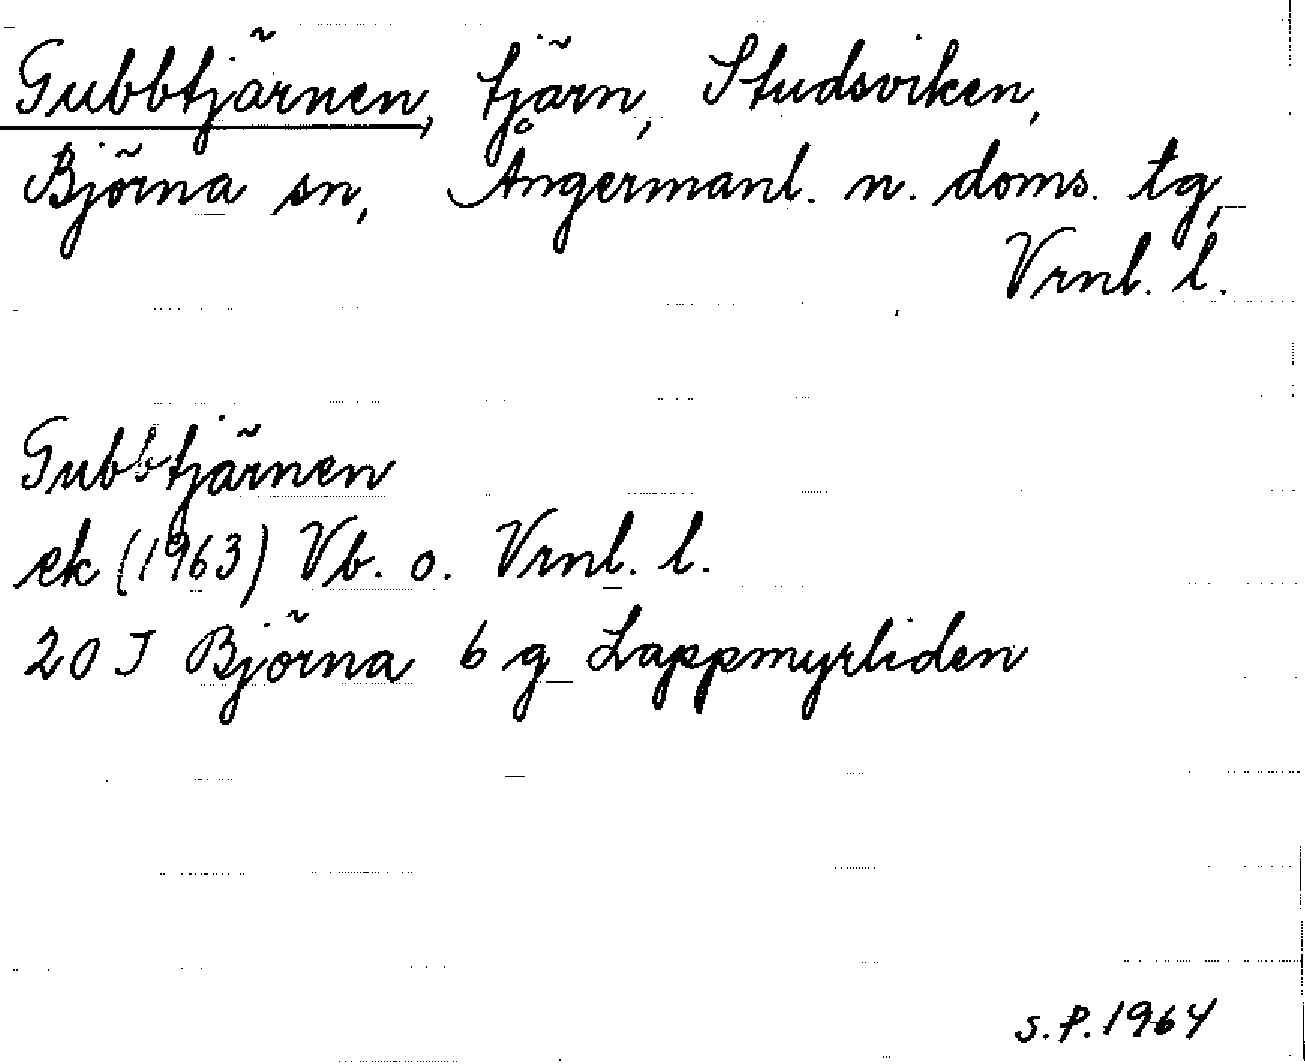 Gubbtjärnen, tjärn, Studsviken,
Björna sn, Ångermanl. n. doms. tg,
Vrnl. l.
Gubbtjärnen
ek (1963) Vb. o. Vrnl. l.
20 J Björna 6 g Lappmyrliden
S.P. 1964